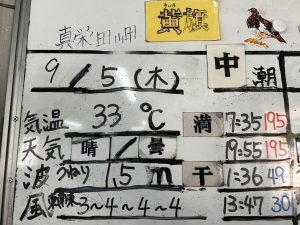 真栄田岬
きいろ
黄旗
9/5(木) 中 潮
気温 33℃ 満 7:35 195
天気 晴/曇 19:55 195
波 うねり 1.5m 干 1:36 49
風 3~4~4~4 13:47 30